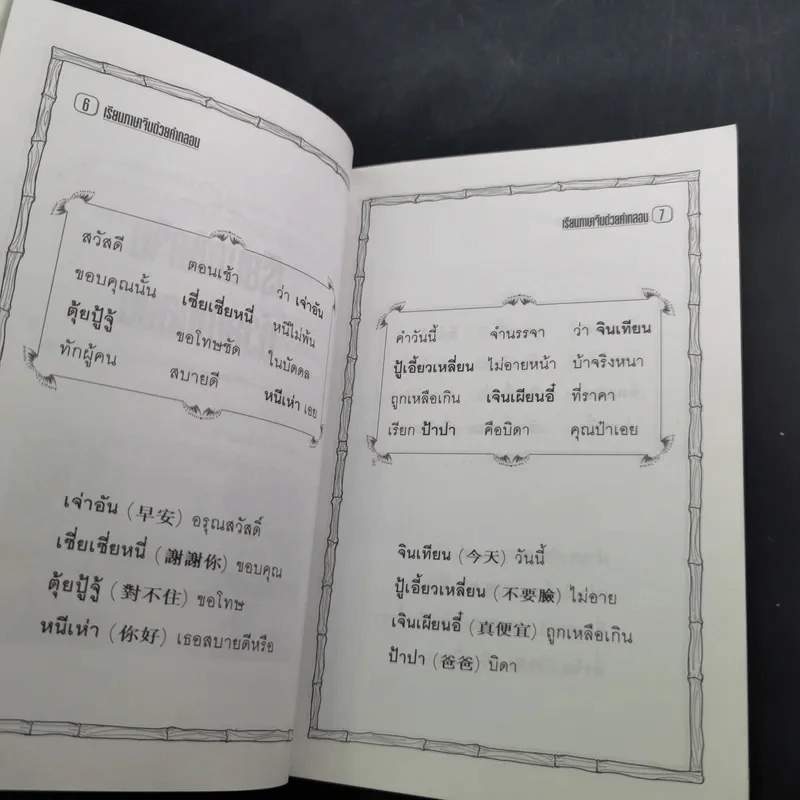 6 เรียนภาษาจีนด้วยคำกลอน
สวัสดี ตอนเช้า ว่า เจ่าอัน
ขอบคุณนั้น เซี่ยเซี่ยหนี่ หนีไม่พ้น
ตุ้ยปู้จู้ ขอโทษชัด ในบัดดล
ทักผู้คน สบายดี หนีเห่า เอย
เจ่าอัน (早安) อรุณสวัสดิ์
เซี่ยเซี่ยหนี่ (謝謝你) ขอบคุณ
ตุ้ยปู้จู้ (對不住) ขอโทษ
หนีเห่า (你好) เธอสบายดีหรือ
เรียนภาษาจีนด้วยคำกลอน 7
คำวันนี้ จำนรรจา ว่า จินเทียน
ปู้เอี้ยวเหลี่ยน ไม่อายหน้า บ้าจริงหนา
ถูกเหลือเกิน เจินเผียนอี๋ ที่ราคา
เรียก ป้าปา คือบิดา คุณป๋าเอย
จินเทียน (今天) วันนี้
ปู้เอี้ยวเหลี่ยน (不要臉) ไม่อาย
เจินเผียนอี๋ (真便宜) ถูกเหลือเกิน
ป้าปา (爸爸) บิดา